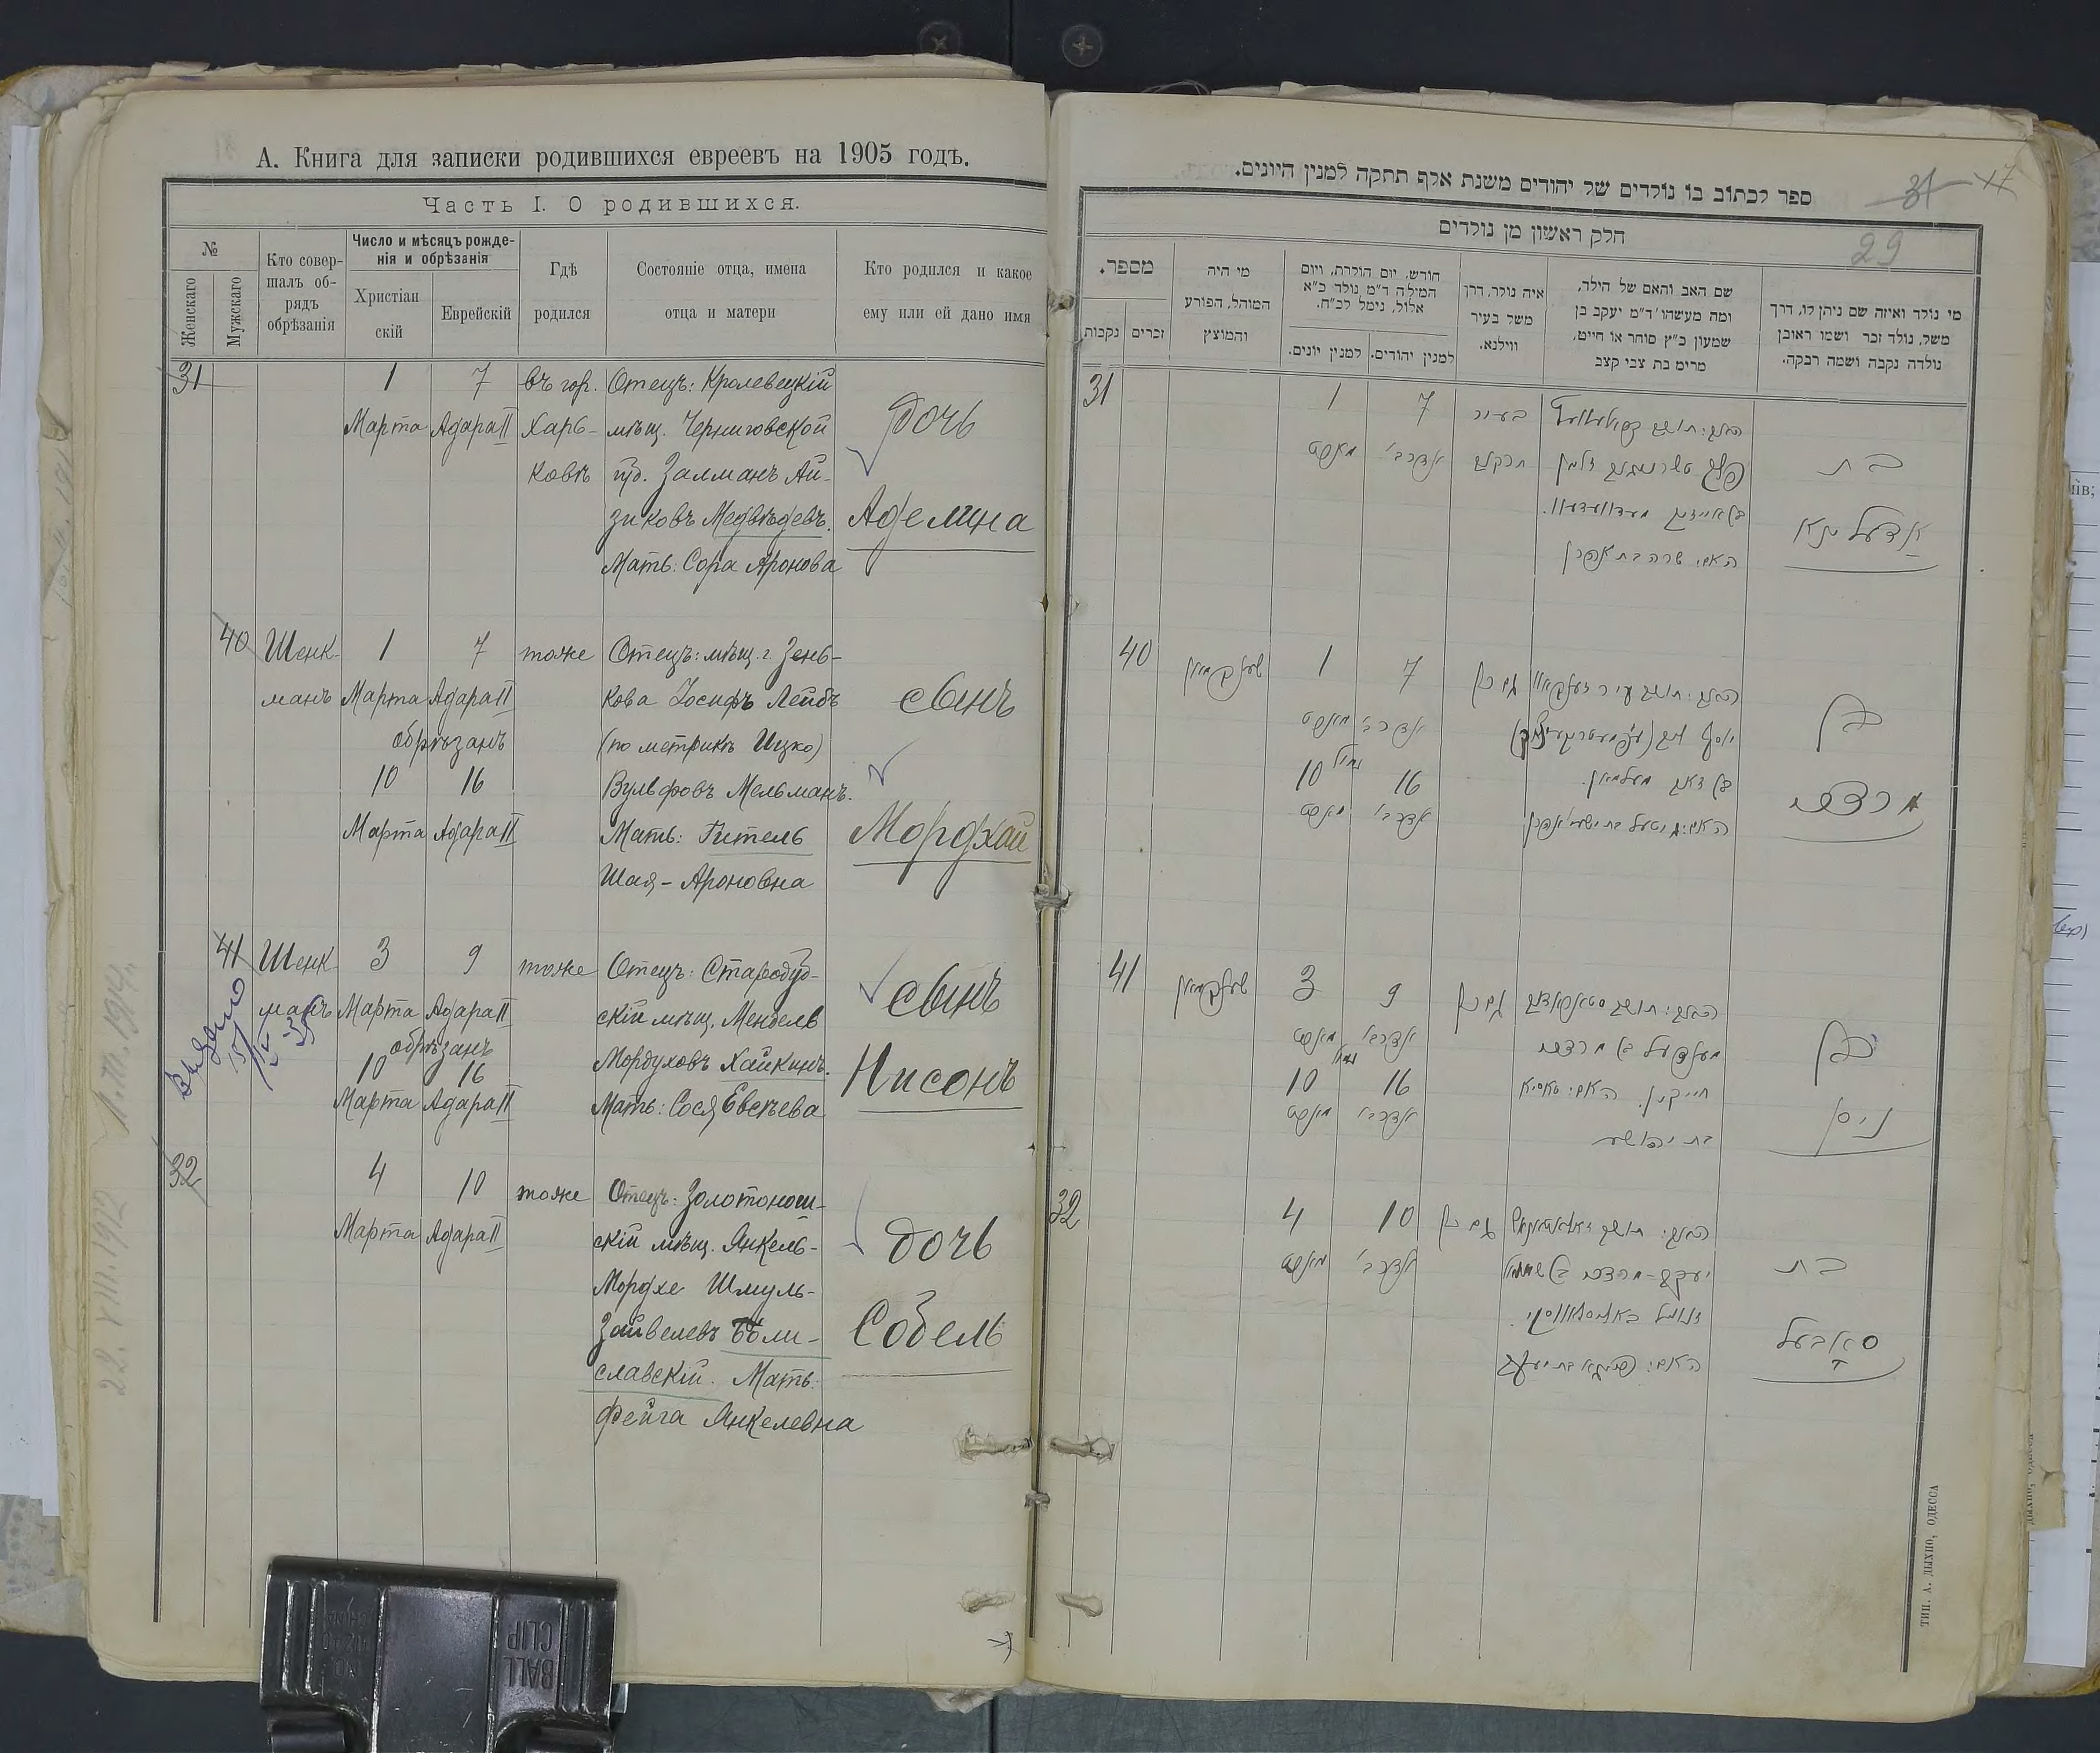 А. Книга для записки родившихся евреевъ на 1905 годъ.
Часть I. О родившихся.
№
Женскаго
Мужскаго
Кто совер-
шалъ об-
рядъ
обрѣзанія
Число и мѣсяцъ рожде-
нія и обрѣзанія
Христіан
скій
Еврейскій
Гдѣ
родился
Состояніе отца, имена
отца и матери
Кто родился и какое
ему или ей дано имя
31
1
Марта
7
Адара II
въ гор.
Харь-
ковѣ
Отецъ: Кролевецкій
мѣщ. Черниговской
губ. Залманъ Ай-
зиковъ Медвѣдевъ.
Мать: Сора Аронова
дочь
Аделина
40
Шенк-
манъ
1
Марта
7
Адара II
обрѣзанъ
10
Марта
16
Адара II
тоже
Отецъ: мѣщ. г. Зень-
кова Іосифъ Лейбъ
(по метрикѣ Ицко)
Вульфовъ Мельманъ.
Мать: Гитель
Шая-Ароновна
сынъ
Мордхай
41
Шенк
манъ
3
Марта
9
Адара II
обрѣзанъ
10
Марта
16
Адара II
тоже
Отецъ: Стародуб-
скій мѣщ. Мендель
Мордуховъ Хайкинъ.
Мать: Сося Евсѣева
сынъ
Нисонъ
32
4
Марта
10
Адара II
тоже
Отецъ: Золотонош-
скій мѣщ. Янкель-
Мордхе Шмуль-
Зайвелевъ Боли-
славскій. Мать:
Фейга Янкелевна
дочь
Собель
22. VIII. 1912
BALL
CLIP
ספר לכתוב בו נולדים של יהודים משנת אלף תתקה למנין היונים.
31
17
29
חלק ראשון מן נולדים
מספר.
נקבות
זכרים
מי היה
המוהל, הפורע
והמוצץ
חודש, יום הולדת, ויום
המילה ד״מ נולד כ״א
אלול, נימל לכ״ח.
למנין יהודים.
למנין יונים.
איה נולד, דרך
משל בעיר
ווילנא.
שם האב והאם של הילד,
ומה מעשהו ד״מ יעקב בן
שמעון כ״ץ סוחר או חייט,
מרים בת צבי קצב
מי נולד ואיזה שם ניתן לו, דרך
משל, נולד זכר ושמו ראובן
נולדה נקבה ושמה רבקה.
31
1
מארט
7
אדר ב׳
בעיר
חרקוב
האם: שרה בת אהרן
בת
אדעלינא
40
שענקמאן
1
מארט
7
אדר ב׳
נימול
10
מארט
16
אדר ב׳
גם כן
בן
מרדכי
41
שענקמאן
3
מארט
9
אדר ב׳
נימול
10
מארט
16
אדר ב׳
גם כן
מענדעל בן מרדכי
חייקין. האם: סאסיא
בת יהושע
בן
ניסן
32
4
מארט
10
אדר ב׳
גם כן
בת
סאבעל
ТИП. А. ДЫХНО, ОДЕССА